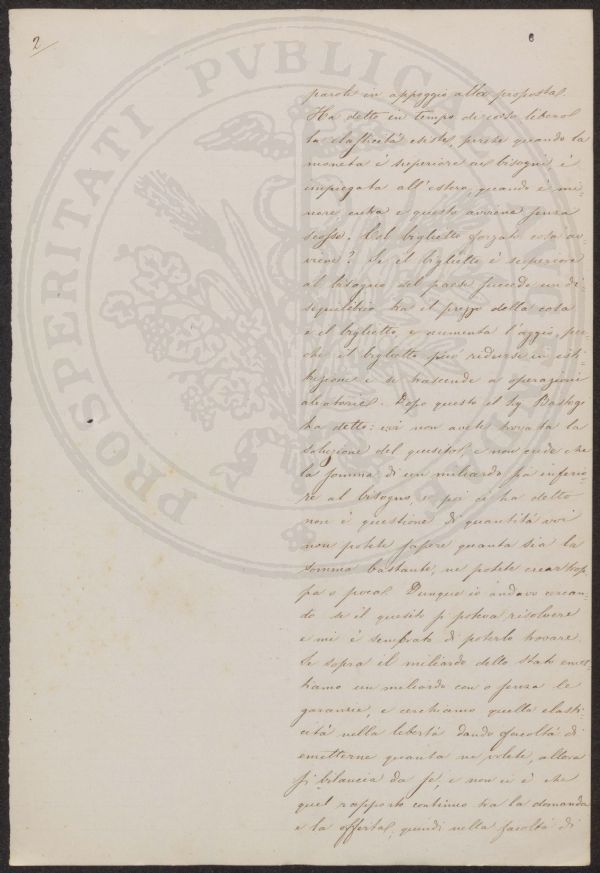 2
parole in appoggio alla proposta.
Ha detto in tempo di corso libero
la elasticità esiste, perché quando la
moneta è superiore ai bisogni, è
impiegata all'estero, quando è mi-
nore, entra e questo avviene senza
scosse. Col biglietto forzato cosa av-
viene? Se il biglietto è superiore
al bisogno del paese succede un di-
sequilibrio tra il prezzo della cosa
e il biglietto, e aumenta l'aggio, per-
chè il biglietto può ridursi in
e si trascende a operazioni
aleatorie. Dopo questo il Sig. Bastogi
ha detto: voi non avete trovata la
soluzione del quesito, e non crede che
la somma di un miliardo sia inferio-
re al bisogno, e poi ci ha detto
non è questione di quantità voi
non potete sapere quanta sia la
somma bastante, nè potete crear trop-
pa o poca. Dunque io andavo cercan-
do se il quesito si poteva risolvere
e mi è sembrato di poterlo trovare.
Se sopra il miliardo dello Stato emet-
tiamo un miliardo con o senza le
garanzie, e cerchiamo quella elasti-
cità nella libertà dando facoltà di
emetterne quanta ne volete, allora
si bilancia da sè, e non vi è che
quel rapporto continuo tra la domanda
e la offerta, quindi nella facoltà di
PROSPERITATI PVBLICAE